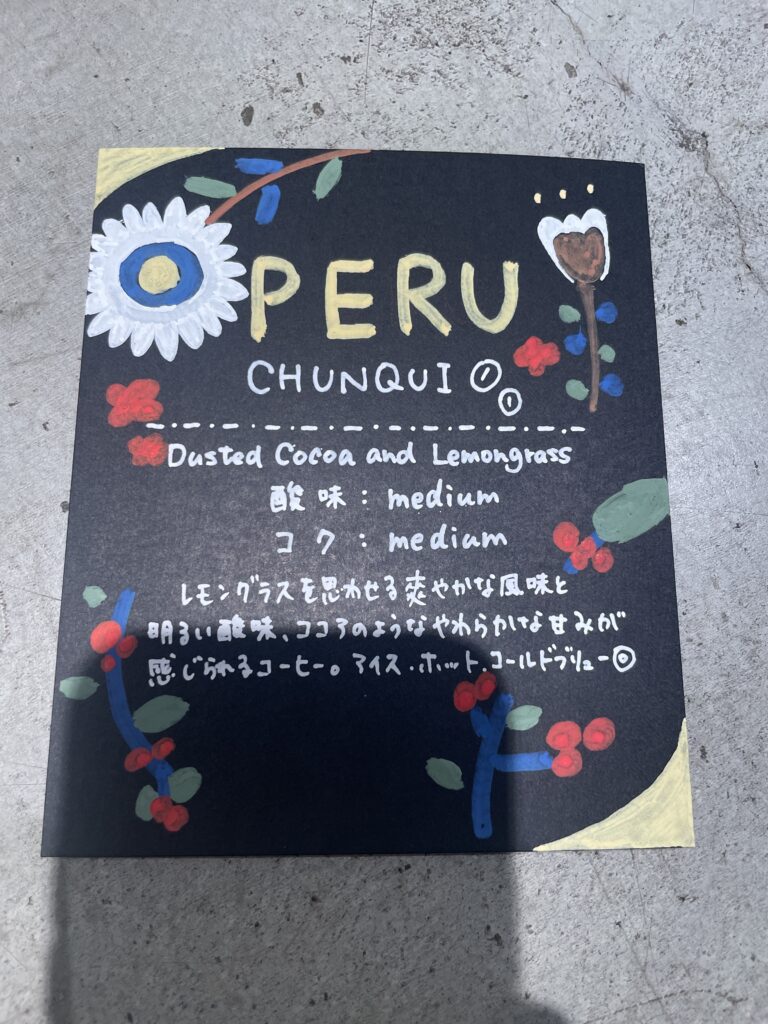 PERU
CHUNQUI
Dusted Cocoa and Lemongrass
酸味：medium
コク：medium
レモングラスを思わせる爽やかな風味と
明るい酸味、ココアのようなやわらかな甘みが
感じられるコーヒー。アイス・ホット・コールドブリュー◎